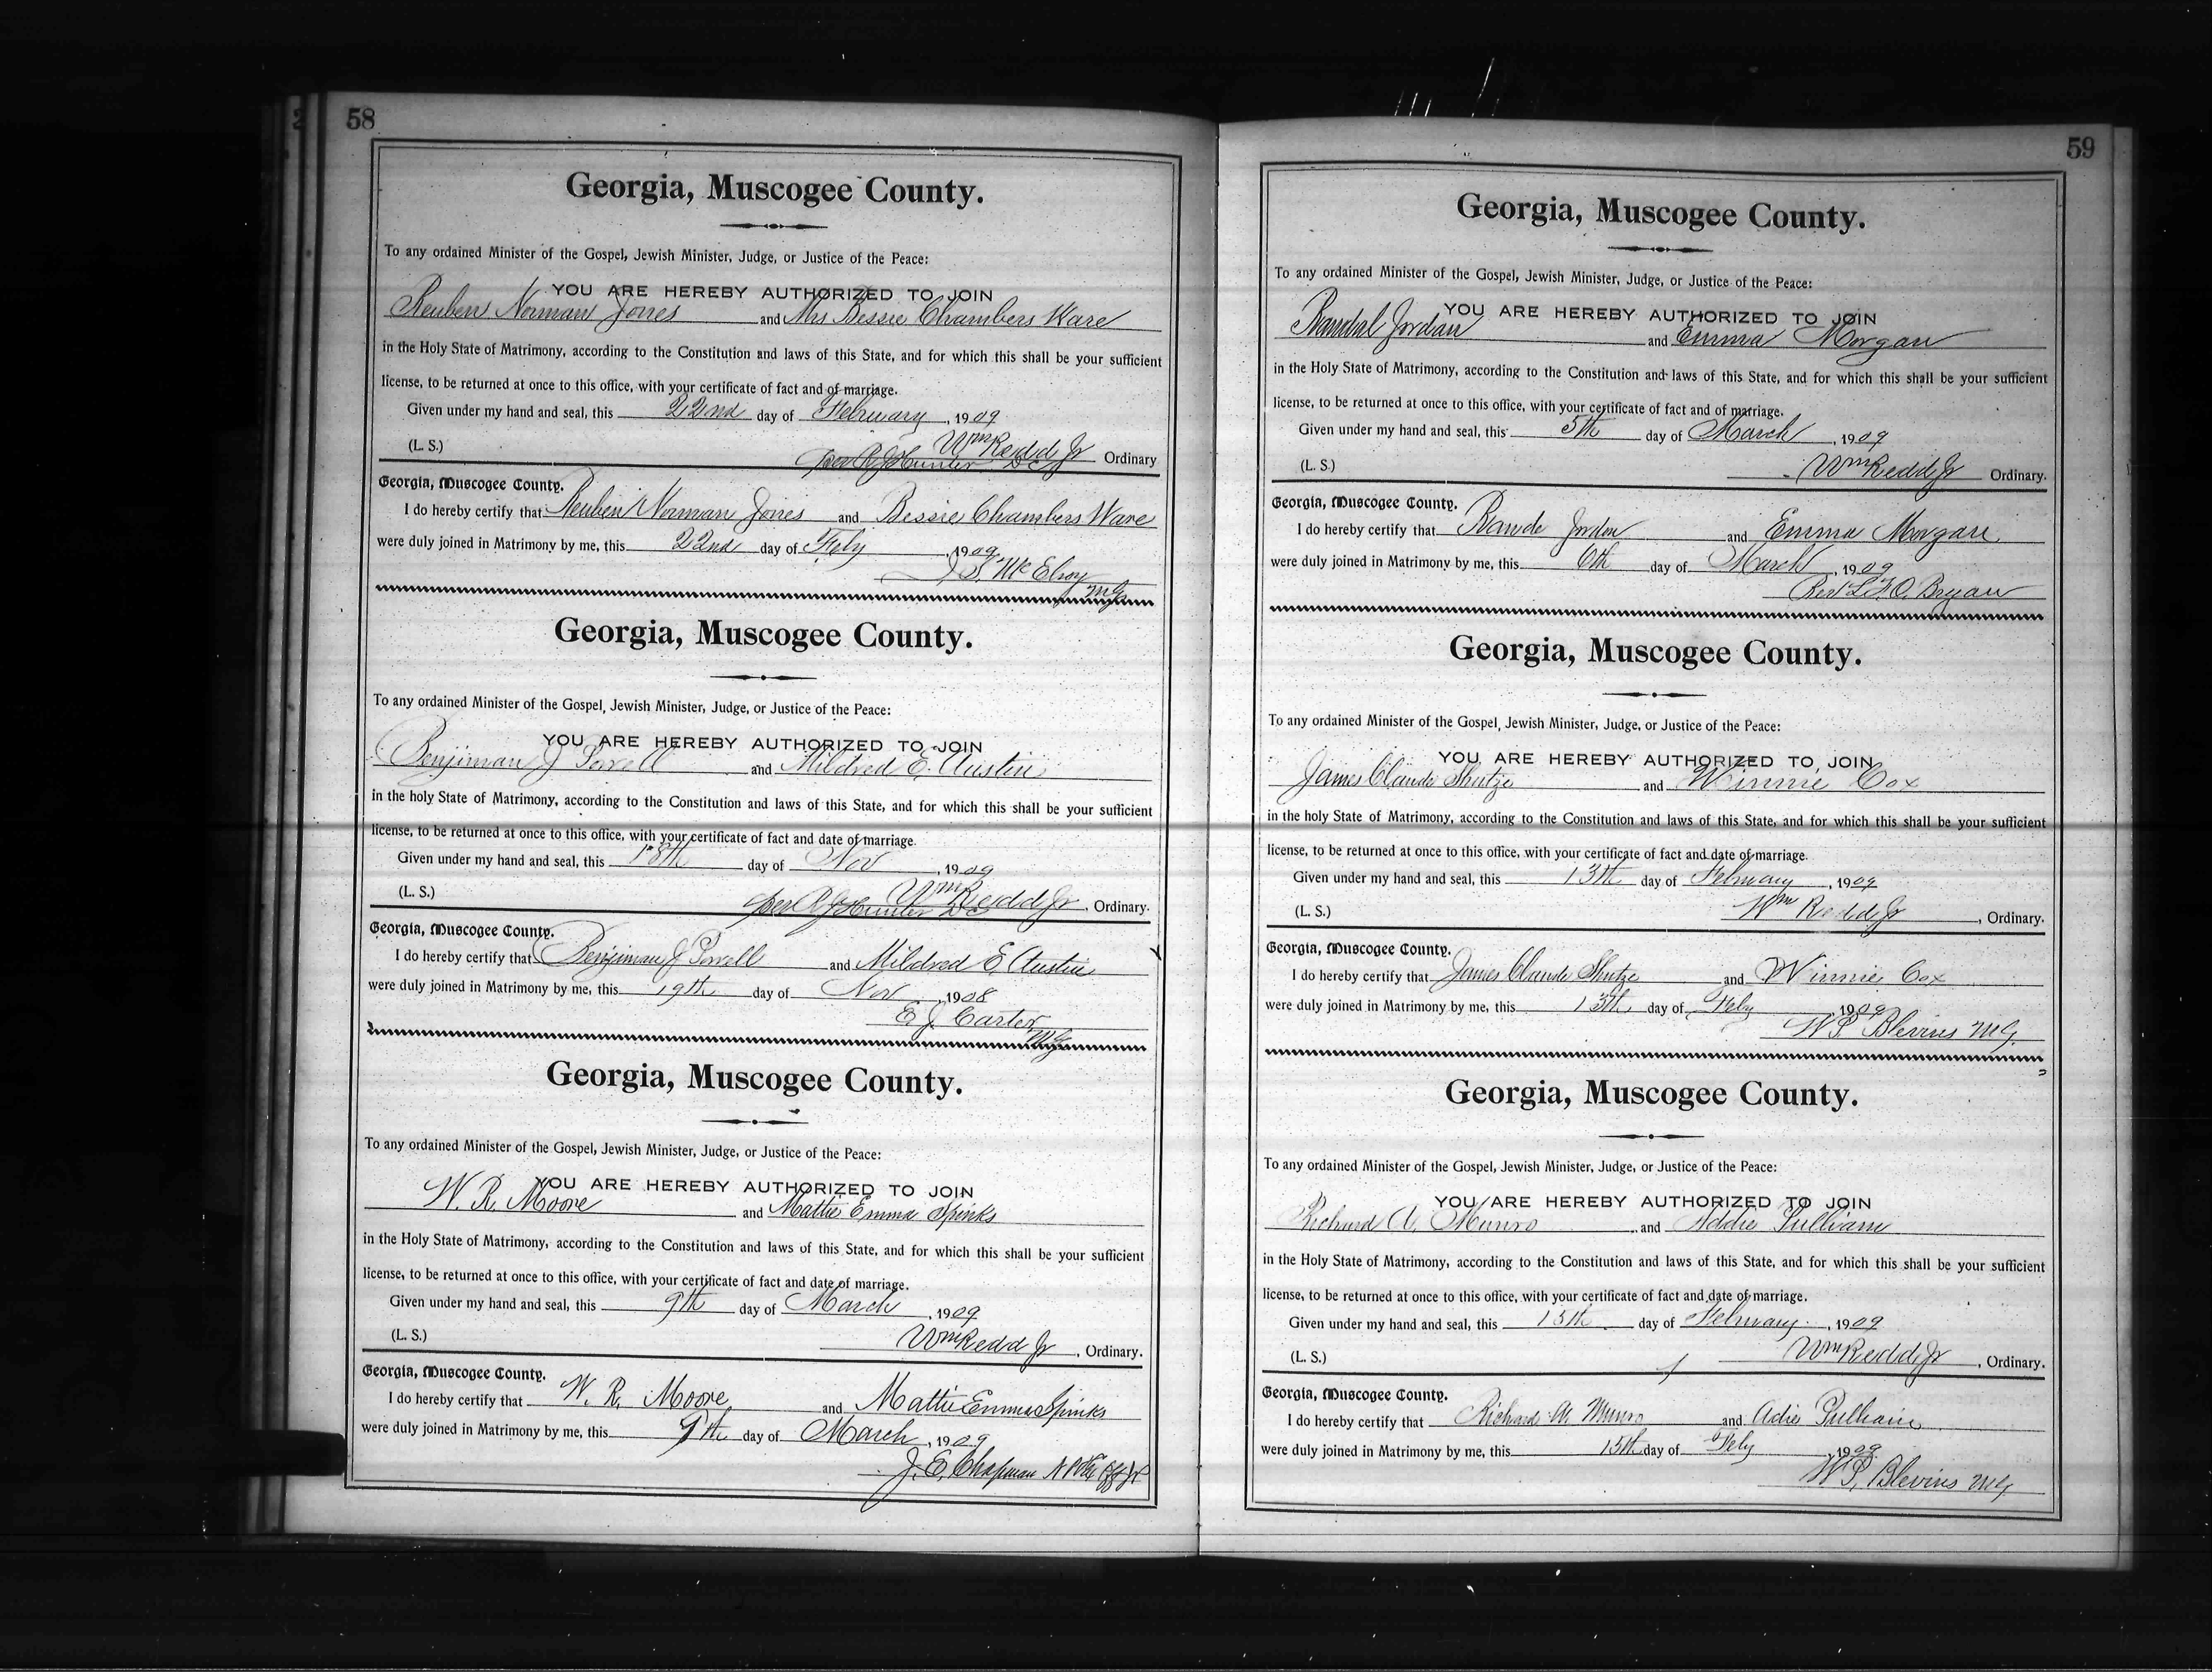 58
Georgia, Muscogee County.
To any ordained Minister of the Gospel, Jewish Minister, Judge, or Justice of the Peace:
YOU ARE HEREBY AUTHORIZED TO JOIN
Reuben Norman Jones and Mrs Bessie Chambers Ware
in the Holy State of Matrimony, according to the Constitution and laws of this State, and for which this shall be your sufficient
license, to be returned at once to this office, with your certificate of fact and of marriage.
Given under my hand and seal, this 22nd day of February, 1909
(L. S.) Wm Redd Jr Ordinary
per R J Hunter DC
Georgia, Muscogee County.
I do hereby certify that Reuben Norman Jones and Bessie Chambers Ware
were duly joined in Matrimony by me, this 22nd day of Feby, 1909
J S. McElroy
MG
Georgia, Muscogee County.
To any ordained Minister of the Gospel, Jewish Minister, Judge, or Justice of the Peace:
YOU ARE HEREBY AUTHORIZED TO JOIN
Benjiman J and Mildred E. Austin
in the holy State of Matrimony, according to the Constitution and laws of this State, and for which this shall be your sufficient
license, to be returned at once to this office, with your certificate of fact and date of marriage.
Given under my hand and seal, this 18th day of Nov, 1909
(L. S.) Wm Redd Jr, Ordinary.
per R J Hunter DC
Georgia, Muscogee County.
I do hereby certify that Benjiman J and Mildred E. Austin
were duly joined in Matrimony by me, this 19th day of Nov, 1908
E. J. Carter
MG
Georgia, Muscogee County.
To any ordained Minister of the Gospel, Jewish Minister, Judge, or Justice of the Peace:
YOU ARE HEREBY AUTHORIZED TO JOIN
W. R. Moore and Mattie Emma Spinks
in the Holy State of Matrimony, according to the Constitution and laws of this State, and for which this shall be your sufficient
license, to be returned at once to this office, with your certificate of fact and date of marriage.
Given under my hand and seal, this 9th day of March, 1909
(L. S.) Wm Redd Jr, Ordinary.
Georgia, Muscogee County.
I do hereby certify that W. R. Moore and Mattie Emma Spinks
were duly joined in Matrimony by me, this 9th day of March, 1909
J. E. Chapman
59
Georgia, Muscogee County.
To any ordained Minister of the Gospel, Jewish Minister, Judge, or Justice of the Peace:
YOU ARE HEREBY AUTHORIZED TO JOIN
Randal Jordan and Emma Morgan
in the Holy State of Matrimony, according to the Constitution and laws of this State, and for which this shall be your sufficient
license, to be returned at once to this office, with your certificate of fact and of marriage.
Given under my hand and seal, this 5th day of March, 1909
(L. S.) Wm Redd Jr Ordinary.
Georgia, Muscogee County.
I do hereby certify that Rande Jordon and Emma Morgan
were duly joined in Matrimony by me, this 6th day of March, 1909
Rev L. F. O. Bryan
Georgia, Muscogee County.
To any ordained Minister of the Gospel, Jewish Minister, Judge, or Justice of the Peace:
YOU ARE HEREBY AUTHORIZED TO JOIN
James Claude Shutze and Winnie Cox
in the holy State of Matrimony, according to the Constitution and laws of this State, and for which this shall be your sufficient
license, to be returned at once to this office, with your certificate of fact and date of marriage.
Given under my hand and seal, this 13th day of February, 1909
(L. S.) Wm Redd Jr, Ordinary.
Georgia, Muscogee County.
I do hereby certify that James Claude Shutze and Winnie Cox
were duly joined in Matrimony by me, this 13th day of Feby 1909
W P Blevins MG.
Georgia, Muscogee County.
To any ordained Minister of the Gospel, Jewish Minister, Judge, or Justice of the Peace:
YOU ARE HEREBY AUTHORIZED TO JOIN
Richard A. Munro and Addie Pulliam
in the Holy State of Matrimony, according to the Constitution and laws of this State, and for which this shall be your sufficient
license, to be returned at once to this office, with your certificate of fact and date of marriage.
Given under my hand and seal, this 15th day of February, 1909
(L. S.) Wm Redd Jr, Ordinary.
Georgia, Muscogee County.
I do hereby certify that Richard A. Munro and Adie Pulliam
were duly joined in Matrimony by me, this 15th day of Feby, 1909
W P. Blevins MG